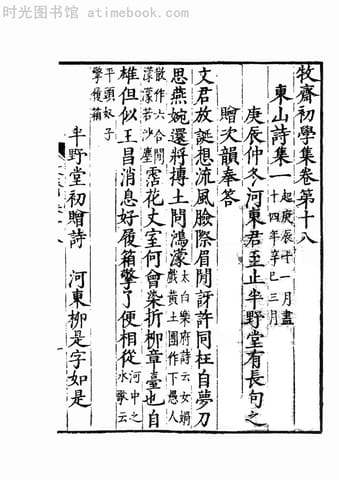 时光图书馆 - atimebook.com
牧齋初學集卷第十八
東山詩集一 起庚辰十一月盡
十四年辛巳三月
庚辰仲冬河東君至止半野堂有長句之
贈次韻奉答
文君放誕想流風臉際眉間訝許同枉自夢刀
思燕婉還將摶土問鴻蒙 太白樂府詩云女媧
戲黄土團作下愚人
散作六合間
濛濛若沙塵 霑花丈室何曾染折柳章臺也自
雄但似王昌消息好履箱擎了便相從 河中之
水歌云
平頭奴子
擎履箱
半野堂初贈詩 河東柳是字如是